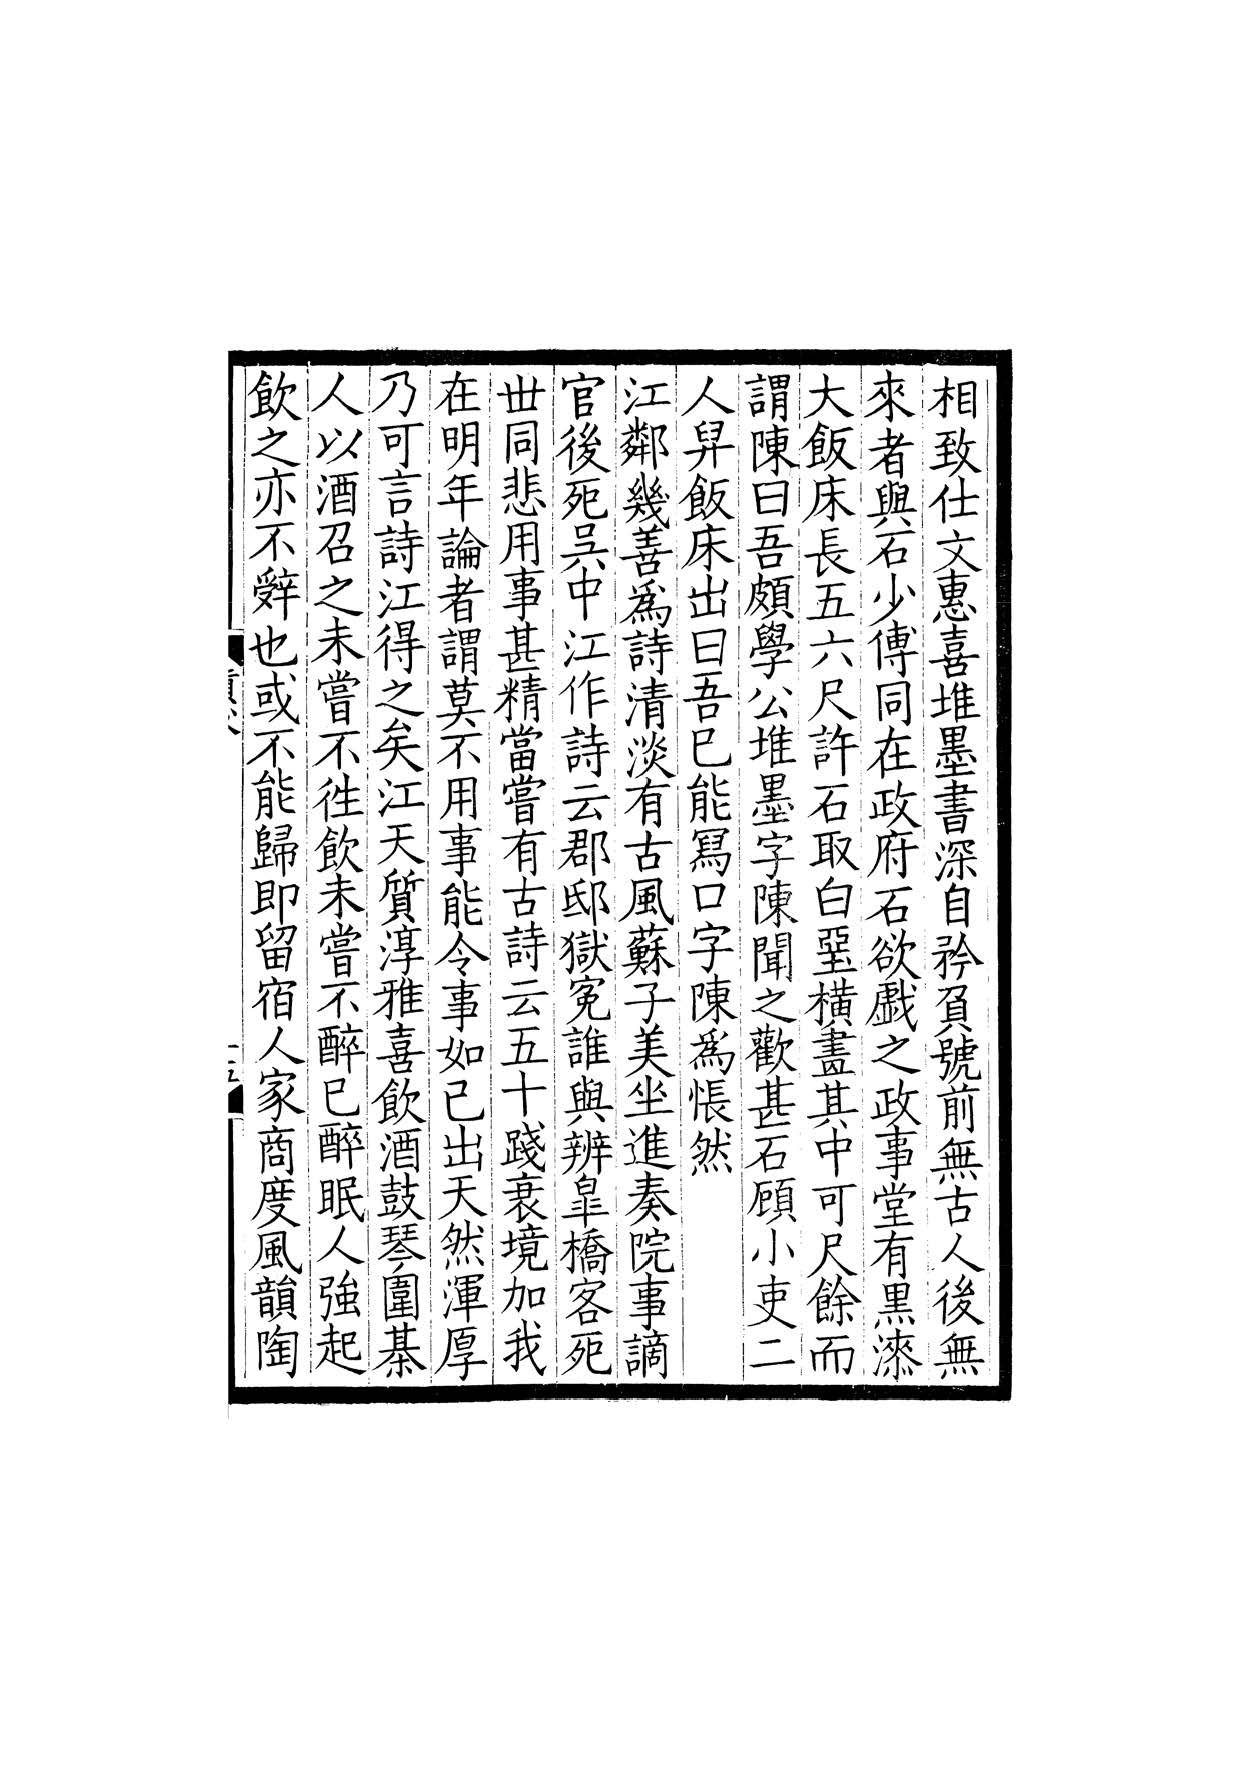 相致仕文惠喜堆墨書深自矜負號前無古人後無
來者與石少傅同在政府石欲戲之政事堂有黑漆
大飯床長五六尺許石取白堊橫畫其中可尺餘而
謂陳曰吾頗學公堆墨字陳聞之歡甚石顧小吏二
人舁飯床出曰吾已能冩口字陳為悵然
江鄰幾善為詩清淡有古風蘇子美坐進奏院事謫
官後死吳中江作詩云郡邸獄冤誰與辨臯橋客死
丗同悲用事甚精當嘗有古詩云五十踐衰境加我
在明年論者謂莫不用事能令事如己出天然渾厚
乃可言詩江得之矣江天質淳雅喜飲酒鼓琴圍棊
人以酒召之未嘗不徃飲未嘗不醉已醉眠人強起
飲之亦不辤也或不能歸即留宿人家商度風韻陶